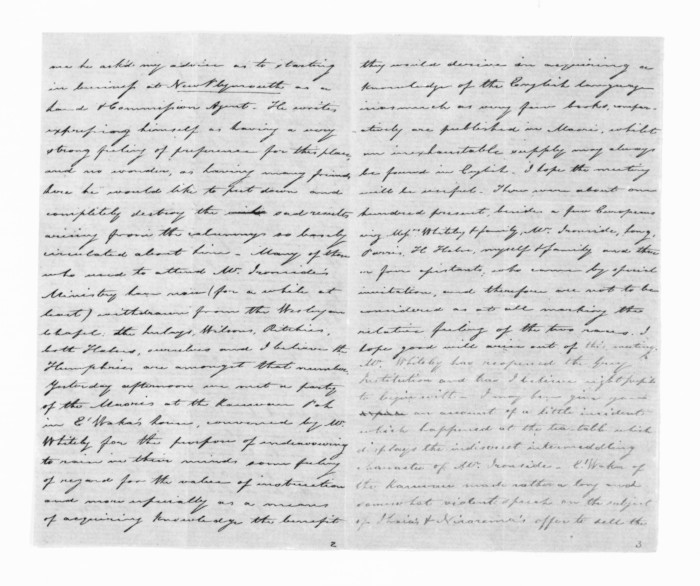 me he ask'd my advice as to starting
in business at New Plymouth as a
Land & Commission Agent. He writes
expressing himself as having a very
strong feeling of preference for this place
and no wonder, as having many friends
here he would like to put down and
completely destroy the sad results
arising from the calumnys so basely
circulated about him - Many of them
who used to attend Mr. Ironside's
Ministry have now (for a while at
least) withdrawn from the Wesleyan
Chapel, the Wilsons, Ritchies,
both Halses, ourselves and I believe the
Humphries are amongst that number.
Yesterday afternoon we met a party
of the Maoris at the Kawau Pah
in E' Waka's house, convened by Mr.
Whitely for the purpose of endeavouring
to raise in their minds some feeling
of regard for the value of instruction
and more especially as a means
of acquiring knowledge the benefit
2
they would derive in acquiring a
knowledge of the English language
inasmuch as very few books, compar-
atively are published in Maori, whilst
an inexhaustible supply may always
be found in English. I hope the meeting
will be useful. There were about one
hundred present, besides a few Europeans
viz Mr. Whitely & family, Mr. Ironside,
Parris, H. Halse, myself & family and three
or four assistants, who came by special
invitation, and therefore are not to be
considered as at all marking the
relative feeling of the two races. I
hope good will arise out of this meeting.
Mr. Whitely has reopened the Grey
Institution and has I believe eight pupils
to begin with - I may here give you
an account of a little incident
which happened at the tea table which
displays the indiscreet intermeddling
character of Mr. Ironside - E' Waka of
the Kawau made rather a long and
somewhat violent speech on the subject
of & offer to sell the
3